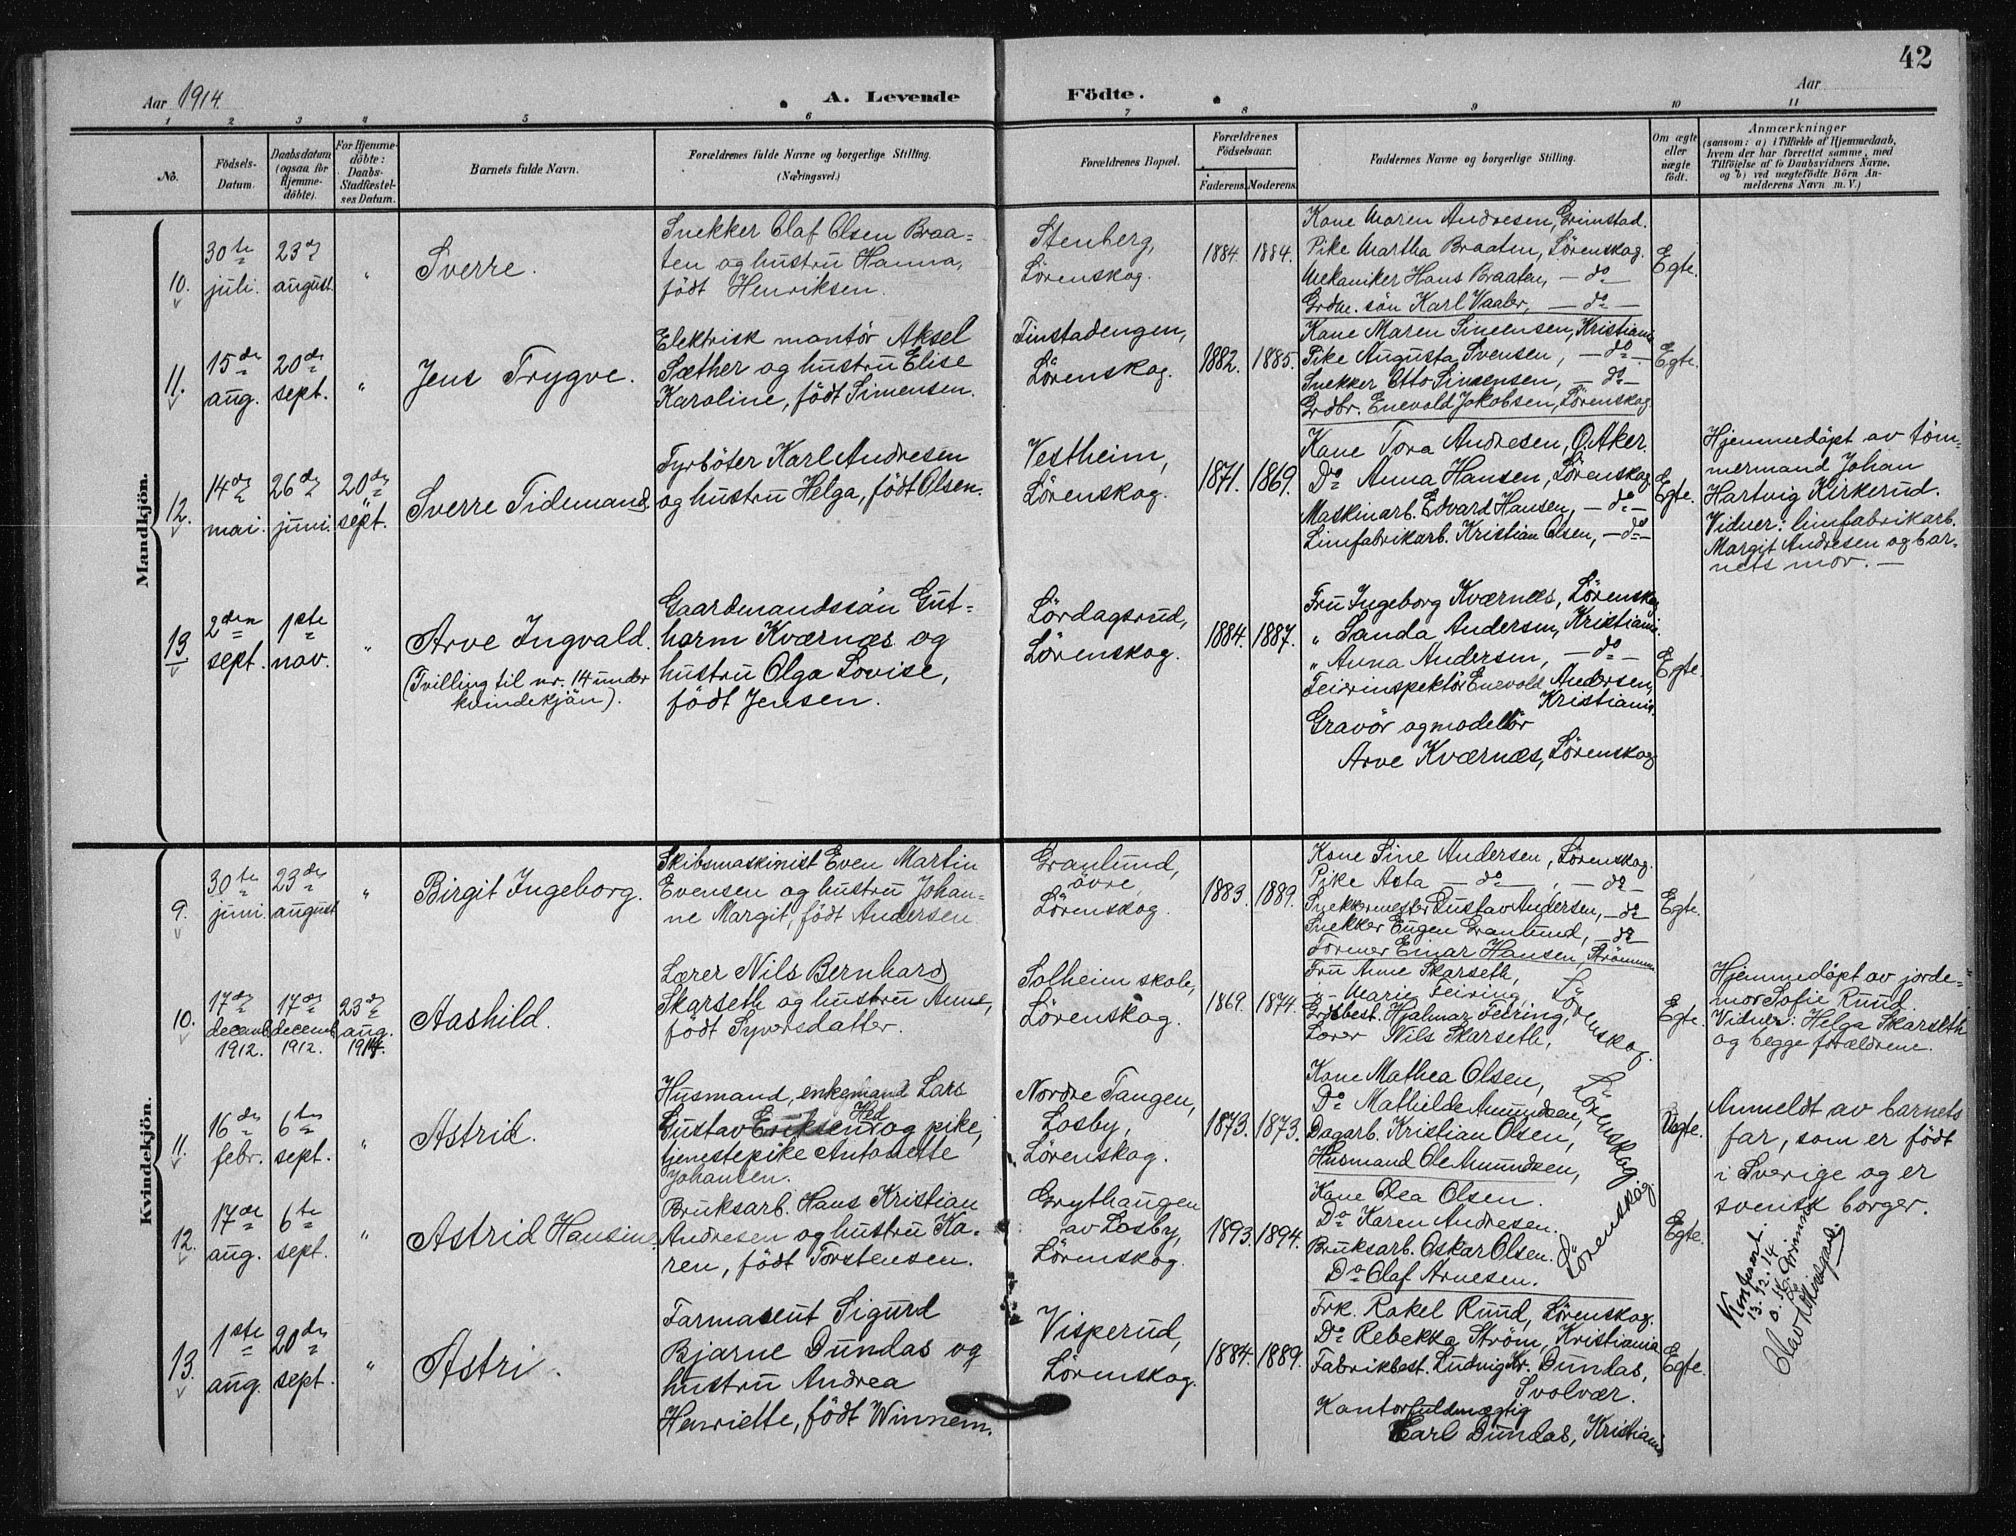 42
Aar 1914.
A. Levende Födte.
Aar
1 2 3 4 5 6 7 8 9 10 11
No.
Födsels-Datum.
Daabsdatum (ogsaa for Hjemmedöbte).
For Hjemmedöbte: Daabs-Stadfæstelses Datum.
Barnets fulde Navn.
Forældrenes fulde Navne og borgerlige Stilling.
(Næringsvei.)
Forældrenes Bopæl.
Forældrenes Födselsaar.
Faderens. Moderens.
Faddernes Navne og borgerlige Stilling.
Om ægte eller uægte födt.
Anmærkninger
(saasom: a) i Tilfælde af Hjemmedaab,
hvem der har forrettet samme, med
Tilföielse af to Daabsvidners Navne,
og b) ved uægtefödte Börn An-
melderens Navn m. V.)
Mandkjön.
10.
30te juli.
23de august
"
Sverre.
Snekker Olaf Olsen Braa-
ten og hustru Hanna,
födt Henriksen.
Stenberg,
Lörenskog.
1884. 1884.
Kone Maren Andresen, Grimstad.
Pike Martha Braaten, Lörenskog.
Mekaniker Hans Braaten, — do —
Grdbr. sön Karl Vaaler, — do —
Egte.
11.
15de aug.
20de sept.
"
Jens Trygve.
Elektrisk montör Aksel
Sæther og hustru Elise
Karoline, födt Simensen.
Finstadengen,
Lörenskog.
1882. 1885.
Kone Maren Simensen, Kristiania
Pike Augusta Svensen, — do —
Snekker Otto Simensen, — do —
Grdbr. Enevold Jakobsen, Lörenskog.
Egte.
12.
14de mai.
26de juni.
20de sept.
Sverre Tidemand.
Fyrböter Karl Andresen
og hustru Helga, födt Olsen.
Vestheim,
Lörenskog.
1871. 1869.
Kone Tora Andresen, Ö. Aker.
Do Anna Hansen, Lörenskog
Maskinarb. Edvard Hansen, — do —
Limfabrikarb. Kristian Olsen, — do —
Egte.
Hjemmedöpt av töm-
mermand Johan
Hartvig Kirkerud.
Vidner: limfabrikarb.
Margit Andresen og bar-
nets mor. —
13
2den sept.
1ste nov.
"
Arve Ingvald.
(Tvilling til nr. 14 under
kvindekjön).
Gaardmandssön Gut-
horm Kværnæs og
hustru Olga Lovise,
födt Jensen.
Lördagsrud,
Lörenskog.
1884. 1887.
Fru Ingeborg Kværnæs, Lörenskog
" Sanda Andersen, Kristiania.
" Anna Andersen, — do —
Feierinspektör Enevold Andersen,
Kristiania.
Gravör og modellör
Arve Kværnæs, Lörenskog
Egte.
Kvindekjön.
9.
30te juni
23de august
"
Birgit Ingeborg.
Skibsmaskinist Even Martin
Evensen og hustru Johan-
ne Margit, födt Andersen
Granlund,
övre,
Lörenskog.
1883. 1889.
Kone Sine Andersen, Lörenskog.
Pike Asta — do — , — do —
Snekkermester Gustav Andersen, — do
Snekker Eugen Granlund, — do —
Former Einar Hansen, Strömmen
Egte.
10.
17de decemb. 1912.
17de decemb. 1912.
23de aug. 1914.
Aashild.
Lærer Nils Bernhard
Skarseth og hustru Anne,
födt Syversdatter.
Solheim skole,
Lörenskog.
1869. 1874.
Fru Anne Skarseth,
" Marie Feiring,
Grdbest. Hjalmar Feiring,
Lærer Nils Skarseth,
Lörenskog.
Egte.
Hjemmedöpt av jorde-
mor Sofie Ruud.
Vidner: Helga Skarseth
og begge forældrene.
11.
16de febr.
6te sept.
"
Astrid.
Husmand, enkemand Lars
Gustav Eriksen Hed og pike,
tjenestepike Antonette
Johansen.
Nordre Tangen,
Losby,
Lörenskog.
1873. 1873.
Kone Mathea Olsen,
Do Mathilde Amundsen,
Dagarb. Kristian Olsen,
Husmand Ole Amundsen,
Lörenskog
Uegte.
Anmeldt av barnets
far, som er födt
i Sverige og er
svensk borger.
12.
17de aug.
6te sept.
"
Astrid Hansine.
Bruksarb. Hans Kristian
Andresen og hustru Ka-
ren, födt Torstensen.
Grythaugen
av Losby,
Lörenskog.
1893. 1894.
Kone Thea Olsen.
Do Karen Andresen.
Bruksarb. Oskar Olsen.
Do Olaf Arnesen.
Lörenskog.
Egte.
13.
1ste aug.
20de sept.
"
Astri.
Farmaceut Sigurd
Bjarne Dundas og
hustru Andrea
Henriette, födt Winnem.
Visperud,
Lörenskog.
1884. 1889.
Frk. Rakel Ruud, Lörenskog.
Do Rebekka Ström, Kristiania
Fabrikbest. Ludvig Kr. Dundas,
Svolvær.
Kontorfuldmægtig
Carl Dundas, Kristiania
Egte.